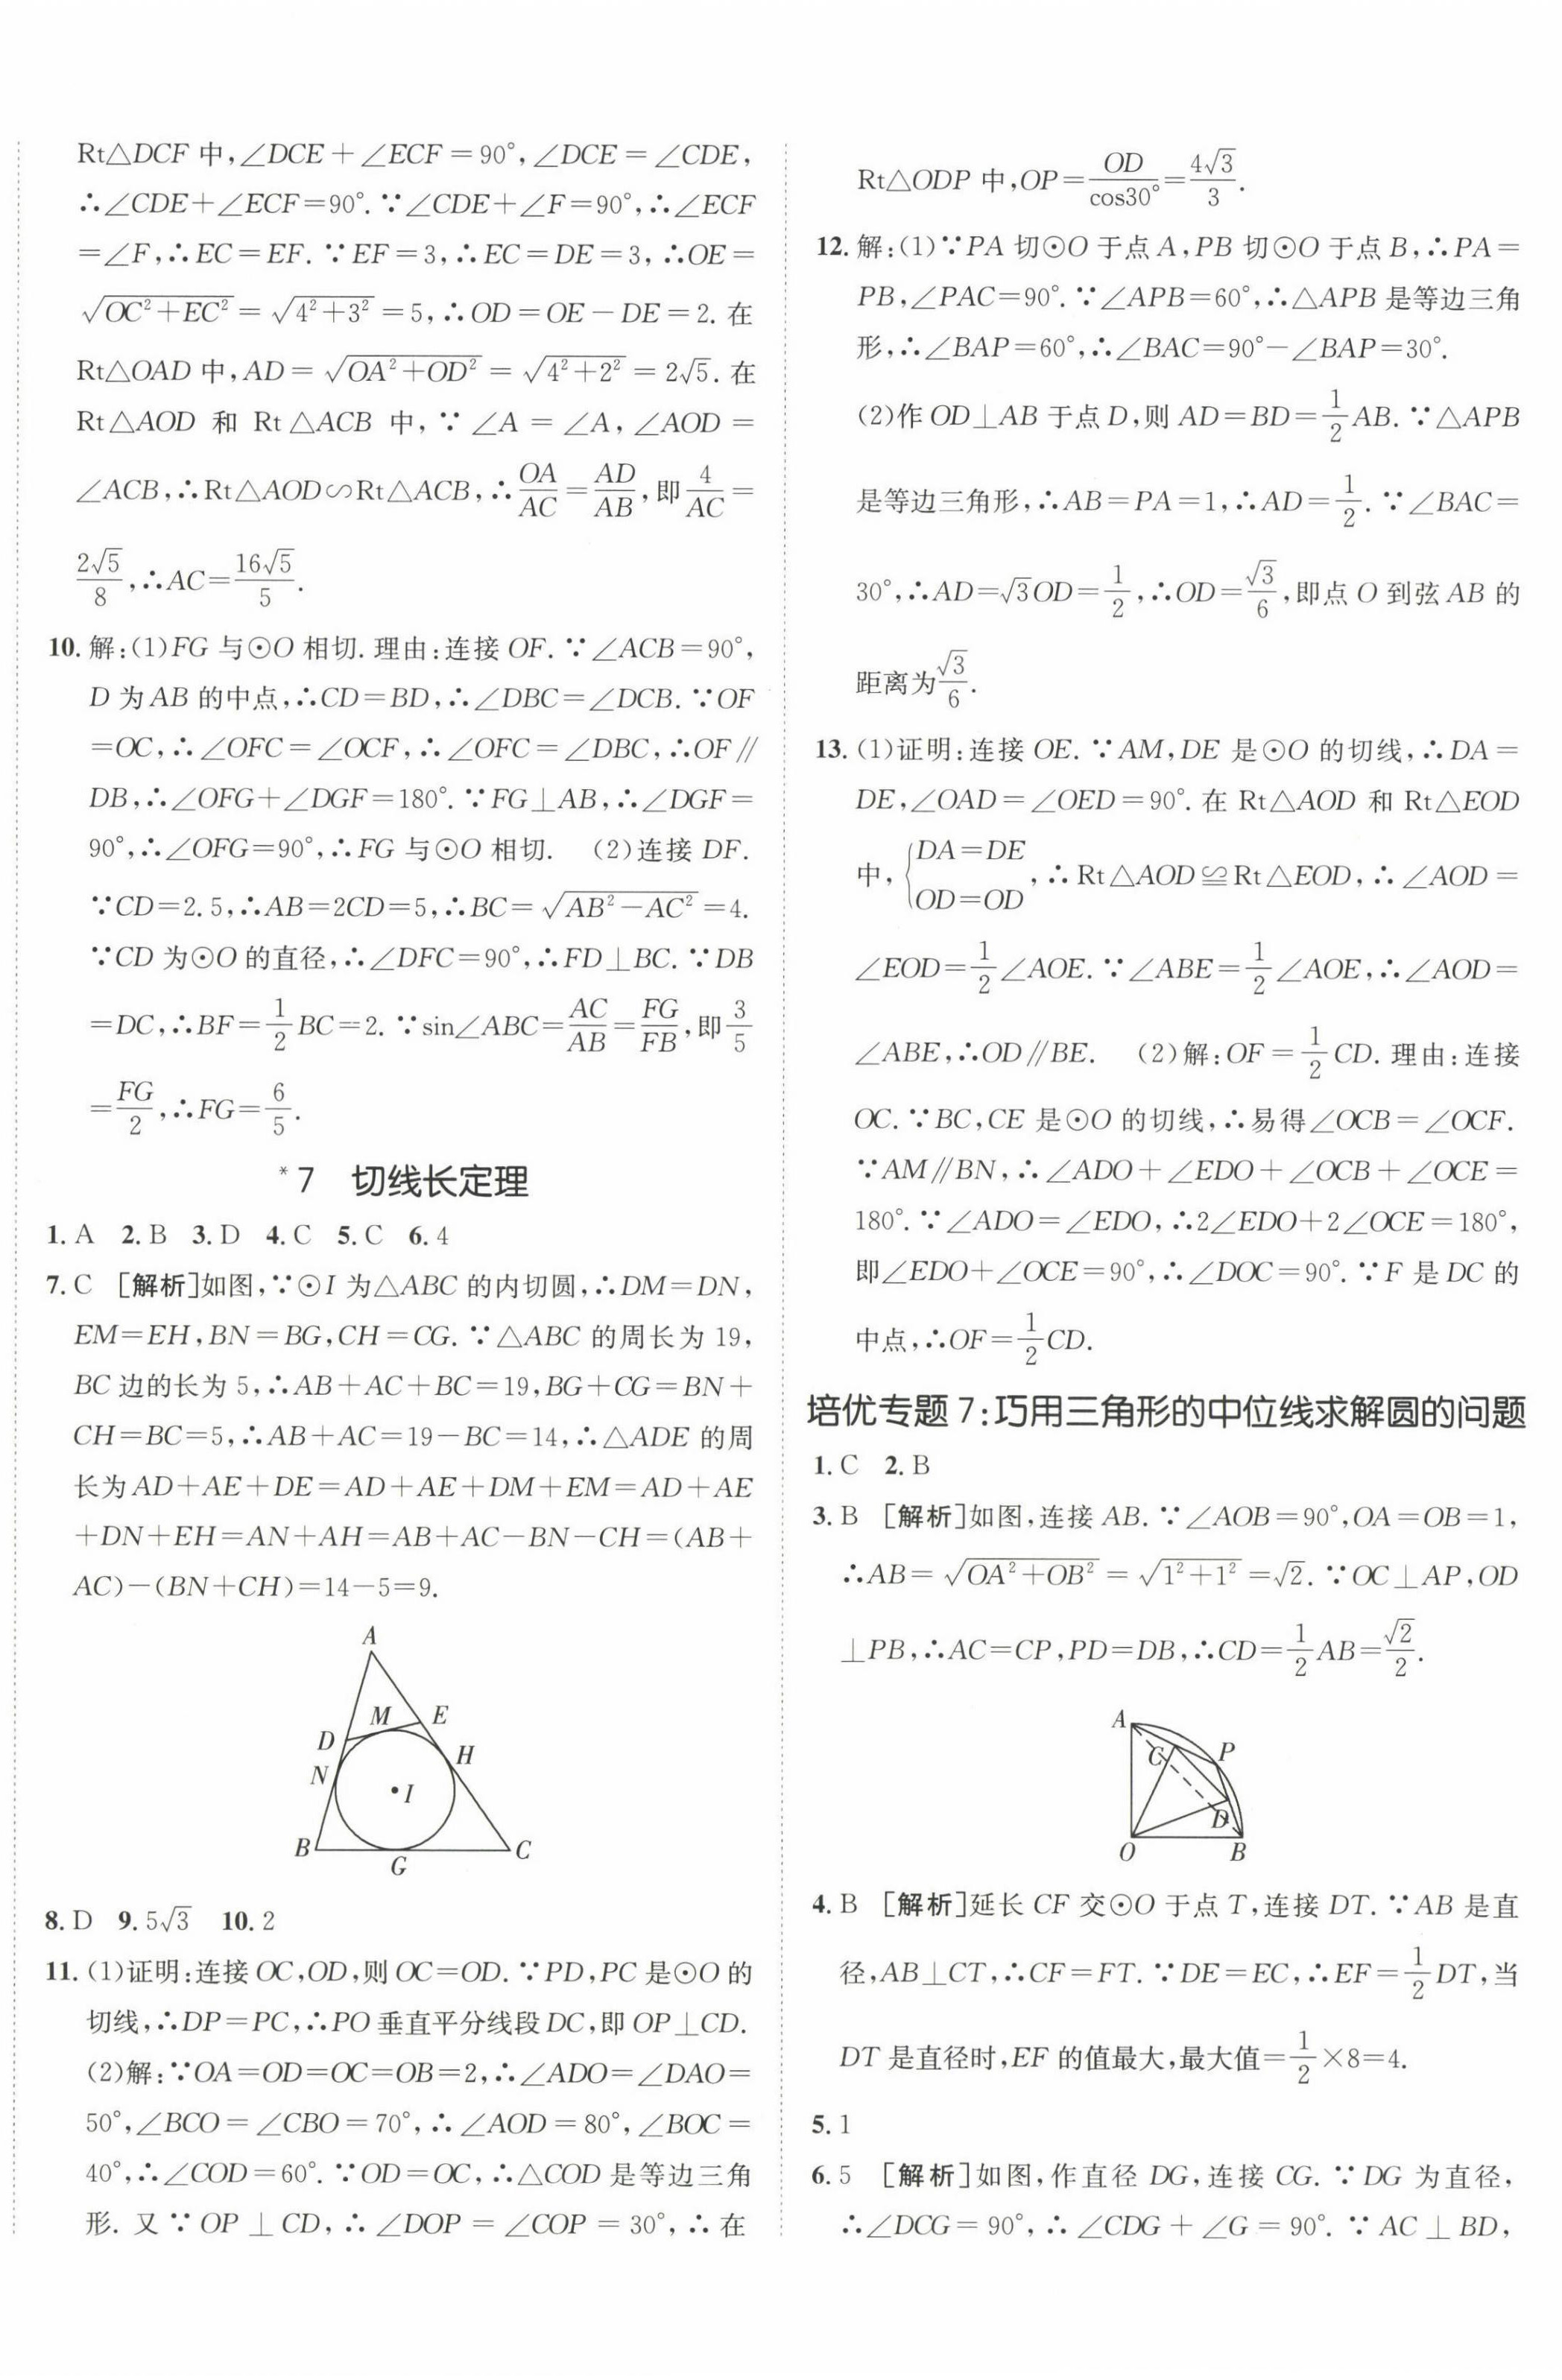 Rt△DCF 中,∠DCE+∠ECF=90°,∠DCE=∠CDE,
∴∠CDE+∠ECF=90°.∵∠CDE+∠F=90°,∴∠ECF
=∠F,∴EC=EF.∵EF=3,∴EC=DE=3,∴OE=
√(OC²+EC²)=√(4²+3²)=5,∴OD=OE-DE=2.在
Rt△OAD 中,AD=√(OA²+OD²)=√(4²+2²)=2√5.在
Rt△AOD 和 Rt△ACB 中,∵∠A=∠A,∠AOD=
∠ACB,∴Rt△AOD∽Rt△ACB,∴OA/AC=AD/AB,即4/AC=
2√5/8,∴AC=16√5/5.
10.解:(1)FG 与⊙O 相切.理由:连接 OF.∵∠ACB=90°,
D 为AB 的中点,∴CD=BD,∴∠DBC=∠DCB.∵OF
=OC,∴∠OFC=∠OCF,∴∠OFC=∠DBC,∴OF∥
DB,∴∠OFG+∠DGF=180°.∵FG⊥AB,∴∠DGF=
90°,∴∠OFG=90°,∴FG 与⊙O 相切. (2)连接 DF.
∵CD=2.5,∴AB=2CD=5,∴BC=√(AB²-AC²)=4.
∵CD 为⊙O 的直径,∴∠DFC=90°,∴FD⊥BC.∵DB
=DC,∴BF=1/2BC=2.∵sin∠ABC=AC/AB=FG/FB,即3/5
=FG/2,∴FG=6/5.
*7 切线长定理
1.A 2.B 3.D 4.C 5.C 6.4
7.C [解析]如图,∵⊙I 为△ABC 的内切圆,∴DM=DN,
EM=EH,BN=BG,CH=CG.∵△ABC 的周长为 19,
BC 边的长为 5,∴AB+AC+BC=19,BG+CG=BN+
CH=BC=5,∴AB+AC=19-BC=14,∴△ADE 的周
长为AD+AE+DE=AD+AE+DM+EM=AD+AE
+DN+EH=AN+AH=AB+AC-BN-CH=(AB+
AC)-(BN+CH)=14-5=9.
A
M
E
D
H
N
I
B
G
C
8.D 9.5√3 10.2
11.(1)证明:连接 OC,OD,则 OC=OD.∵PD,PC 是⊙O 的
切线,∴DP=PC,∴PO 垂直平分线段 DC,即 OP⊥CD.
(2)解:∵OA=OD=OC=OB=2,∴∠ADO=∠DAO=
50°,∠BCO=∠CBO=70°,∴∠AOD=80°,∠BOC=
40°,∴∠COD=60°.∵OD=OC,∴△COD 是等边三角
形.又∵OP⊥CD,∴∠DOP=∠COP=30°,∴在
Rt△ODP 中,OP=OD/cos30°=4√3/3.
12.解:(1)∵PA 切⊙O 于点 A,PB 切⊙O 于点 B,∴PA=
PB,∠PAC=90°.∵∠APB=60°,∴△APB 是等边三角
形,∴∠BAP=60°,∴∠BAC=90°-∠BAP=30°.
(2)作 OD⊥AB 于点 D,则 AD=BD=1/2AB.∵△APB
是等边三角形,∴AB=PA=1,∴AD=1/2.∵∠BAC=
30°,∴AD=√3OD=1/2,∴OD=√3/6,即点 O 到弦 AB 的
距离为√3/6.
13.(1)证明:连接 OE.∵AM,DE 是⊙O 的切线,∴DA=
DE,∠OAD=∠OED=90°.在 Rt△AOD 和 Rt△EOD
中,{DA=DE OD=OD,∴Rt△AOD≌Rt△EOD,∴∠AOD=
∠EOD=1/2∠AOE.∵∠ABE=1/2∠AOE,∴∠AOD=
∠ABE,∴OD∥BE. (2)解:OF=1/2CD.理由:连接
OC.∵BC,CE 是⊙O 的切线,∴易得∠OCB=∠OCF.
∵AM∥BN,∴∠ADO+∠EDO+∠OCB+∠OCE=
180°.∵∠ADO=∠EDO,∴2∠EDO+2∠OCE=180°,
即∠EDO+∠OCE=90°,∴∠DOC=90°.∵F 是 DC 的
中点,∴OF=1/2CD.
培优专题 7:巧用三角形的中位线求解圆的问题
1.C 2.B
3.B [解析]如图,连接 AB.∵∠AOB=90°,OA=OB=1,
∴AB=√(OA²+OB²)=√(1²+1²)=√2.∵OC⊥AP,OD
⊥PB,∴AC=CP,PD=DB,∴CD=1/2AB=√2/2.
A
C
P
D
O
B
4.B [解析]延长 CF 交⊙O 于点 T,连接 DT.∵AB 是直
径,AB⊥CT,∴CF=FT.∵DE=EC,∴EF=1/2DT,当
DT 是直径时,EF 的值最大,最大值=1/2×8=4.
5.1
6.5 [解析]如图,作直径 DG,连接 CG.∵DG 为直径,
∴∠DCG=90°,∴∠CDG+∠G=90°.∵AC⊥BD,